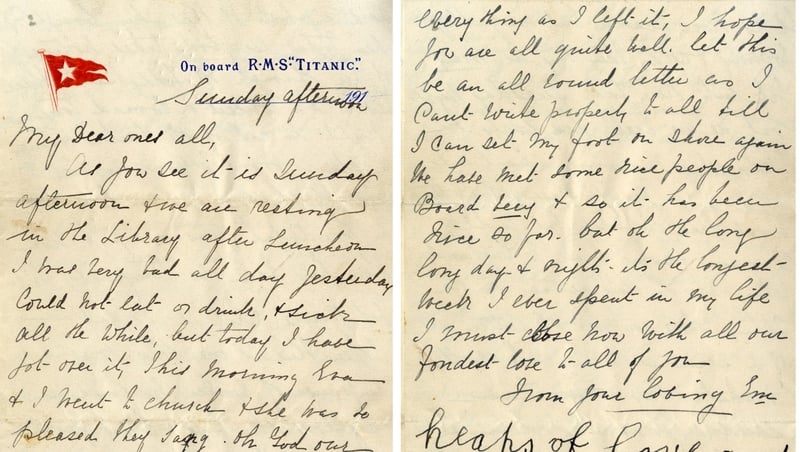 On board R·M·S. "TITANIC."
Sunday afternoon 191
My Dear ones all,
As you see it is Sunday
afternoon & we are resting
in the Library after Luncheon
I was very bad all day yesterday
Could not eat or drink, & sick
all the while, but today I have
got over it, This morning Eva
& I went to church & she was so
pleased they sang. Oh God our
everything as I left it, I hope
you are all quite well. let this
be an all round letter as I
Cant write properly to all till
I can set my foot on shore again
We have met some nice people on
Board Lucy & so it has been
nice so far. but oh the long
long day & nights. its the longest
Week I ever spent in my life
I must close now with all our
fondest love to all of you
From your loving Em
heaps of